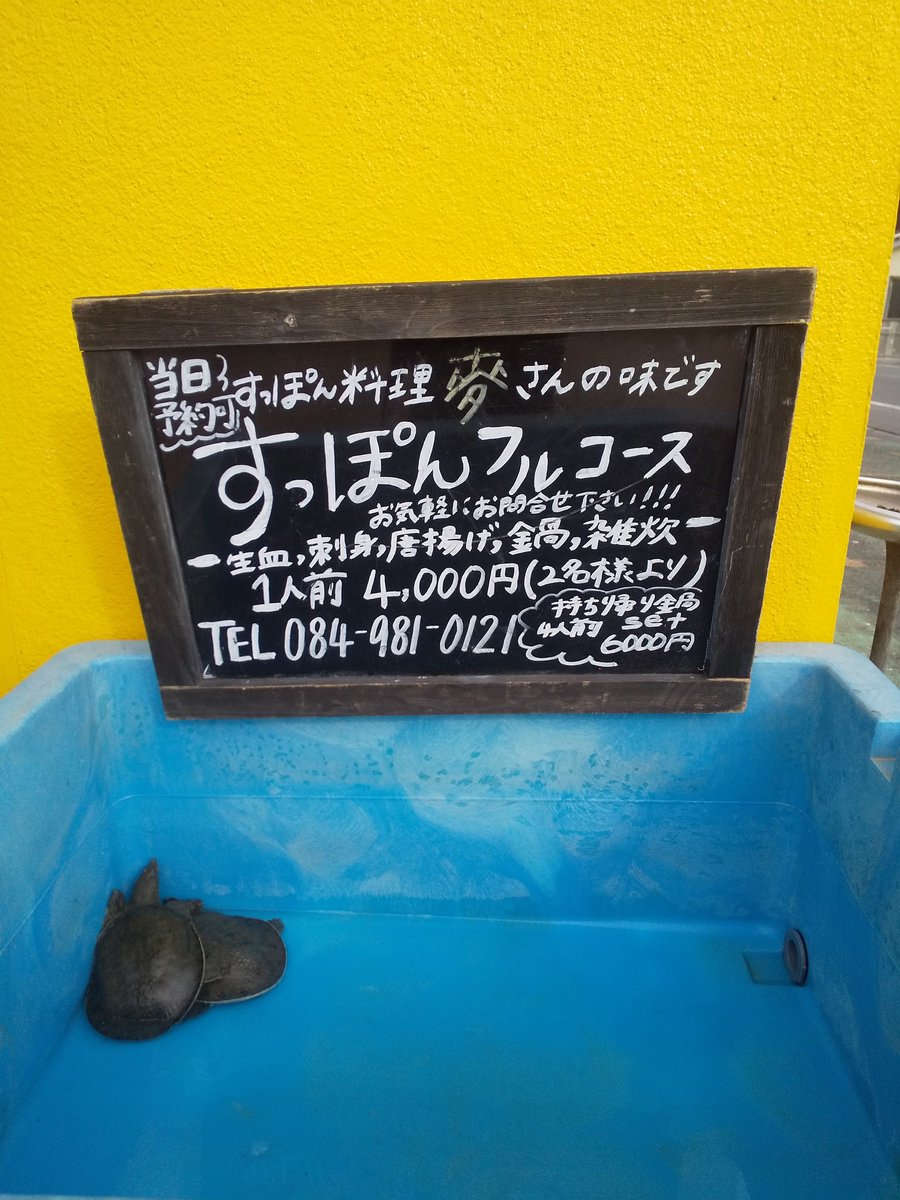 当日
予約可
すっぽん料理 麥 さんの味です
すっぽんフルコース
お気軽にお問合せ下さい!!!
ー生血,刺身,唐揚げ,鍋,雑炊ー
1人前 4,000円(2名様より)
TEL 084-981-0121
持ち帰り鍋
4人前 set
6000円